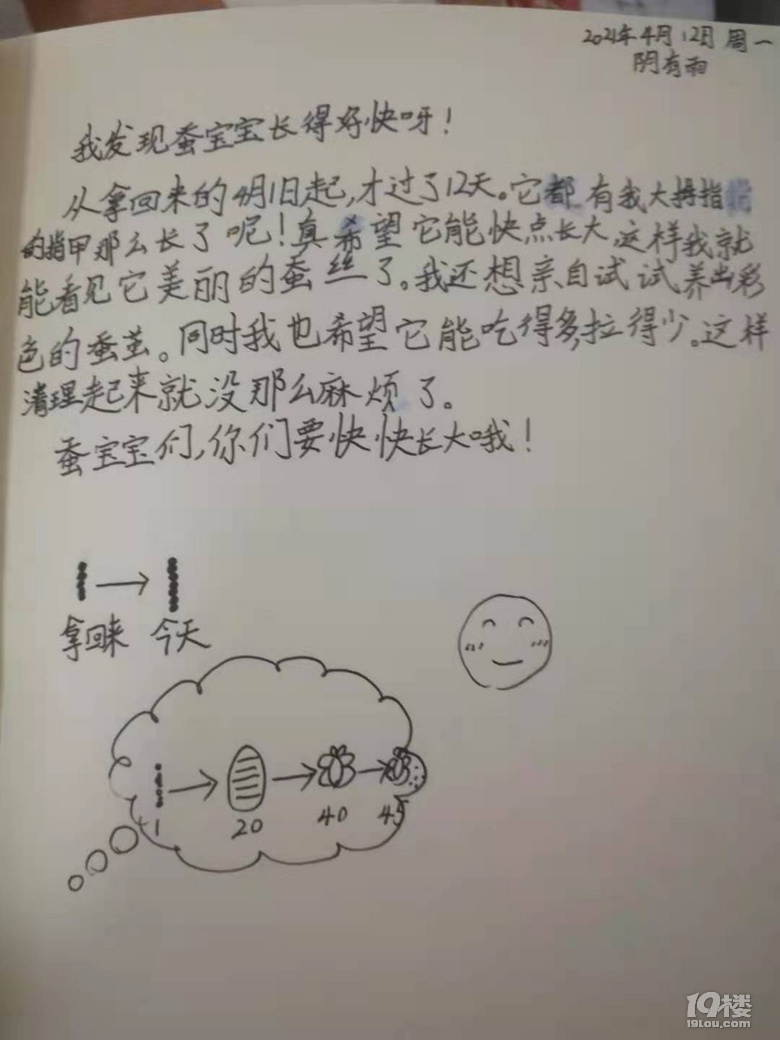 2021年4月12日 周一
阴有雨
我发现蚕宝宝长得好快呀!
从拿回来的4月1日起,才过了12天。它都有我大拇指
的指甲那么长了呢!真希望它能快点长大,这样我就
能看见它美丽的蚕丝了。我还想亲自试试养出彩
色的蚕茧。同时我也希望它能吃得多,拉得少。这样
清理起来就没那么麻烦了。
蚕宝宝们,你们要快快长大哦!
拿回来 今天
1 20 40 45
19楼
19lou.com